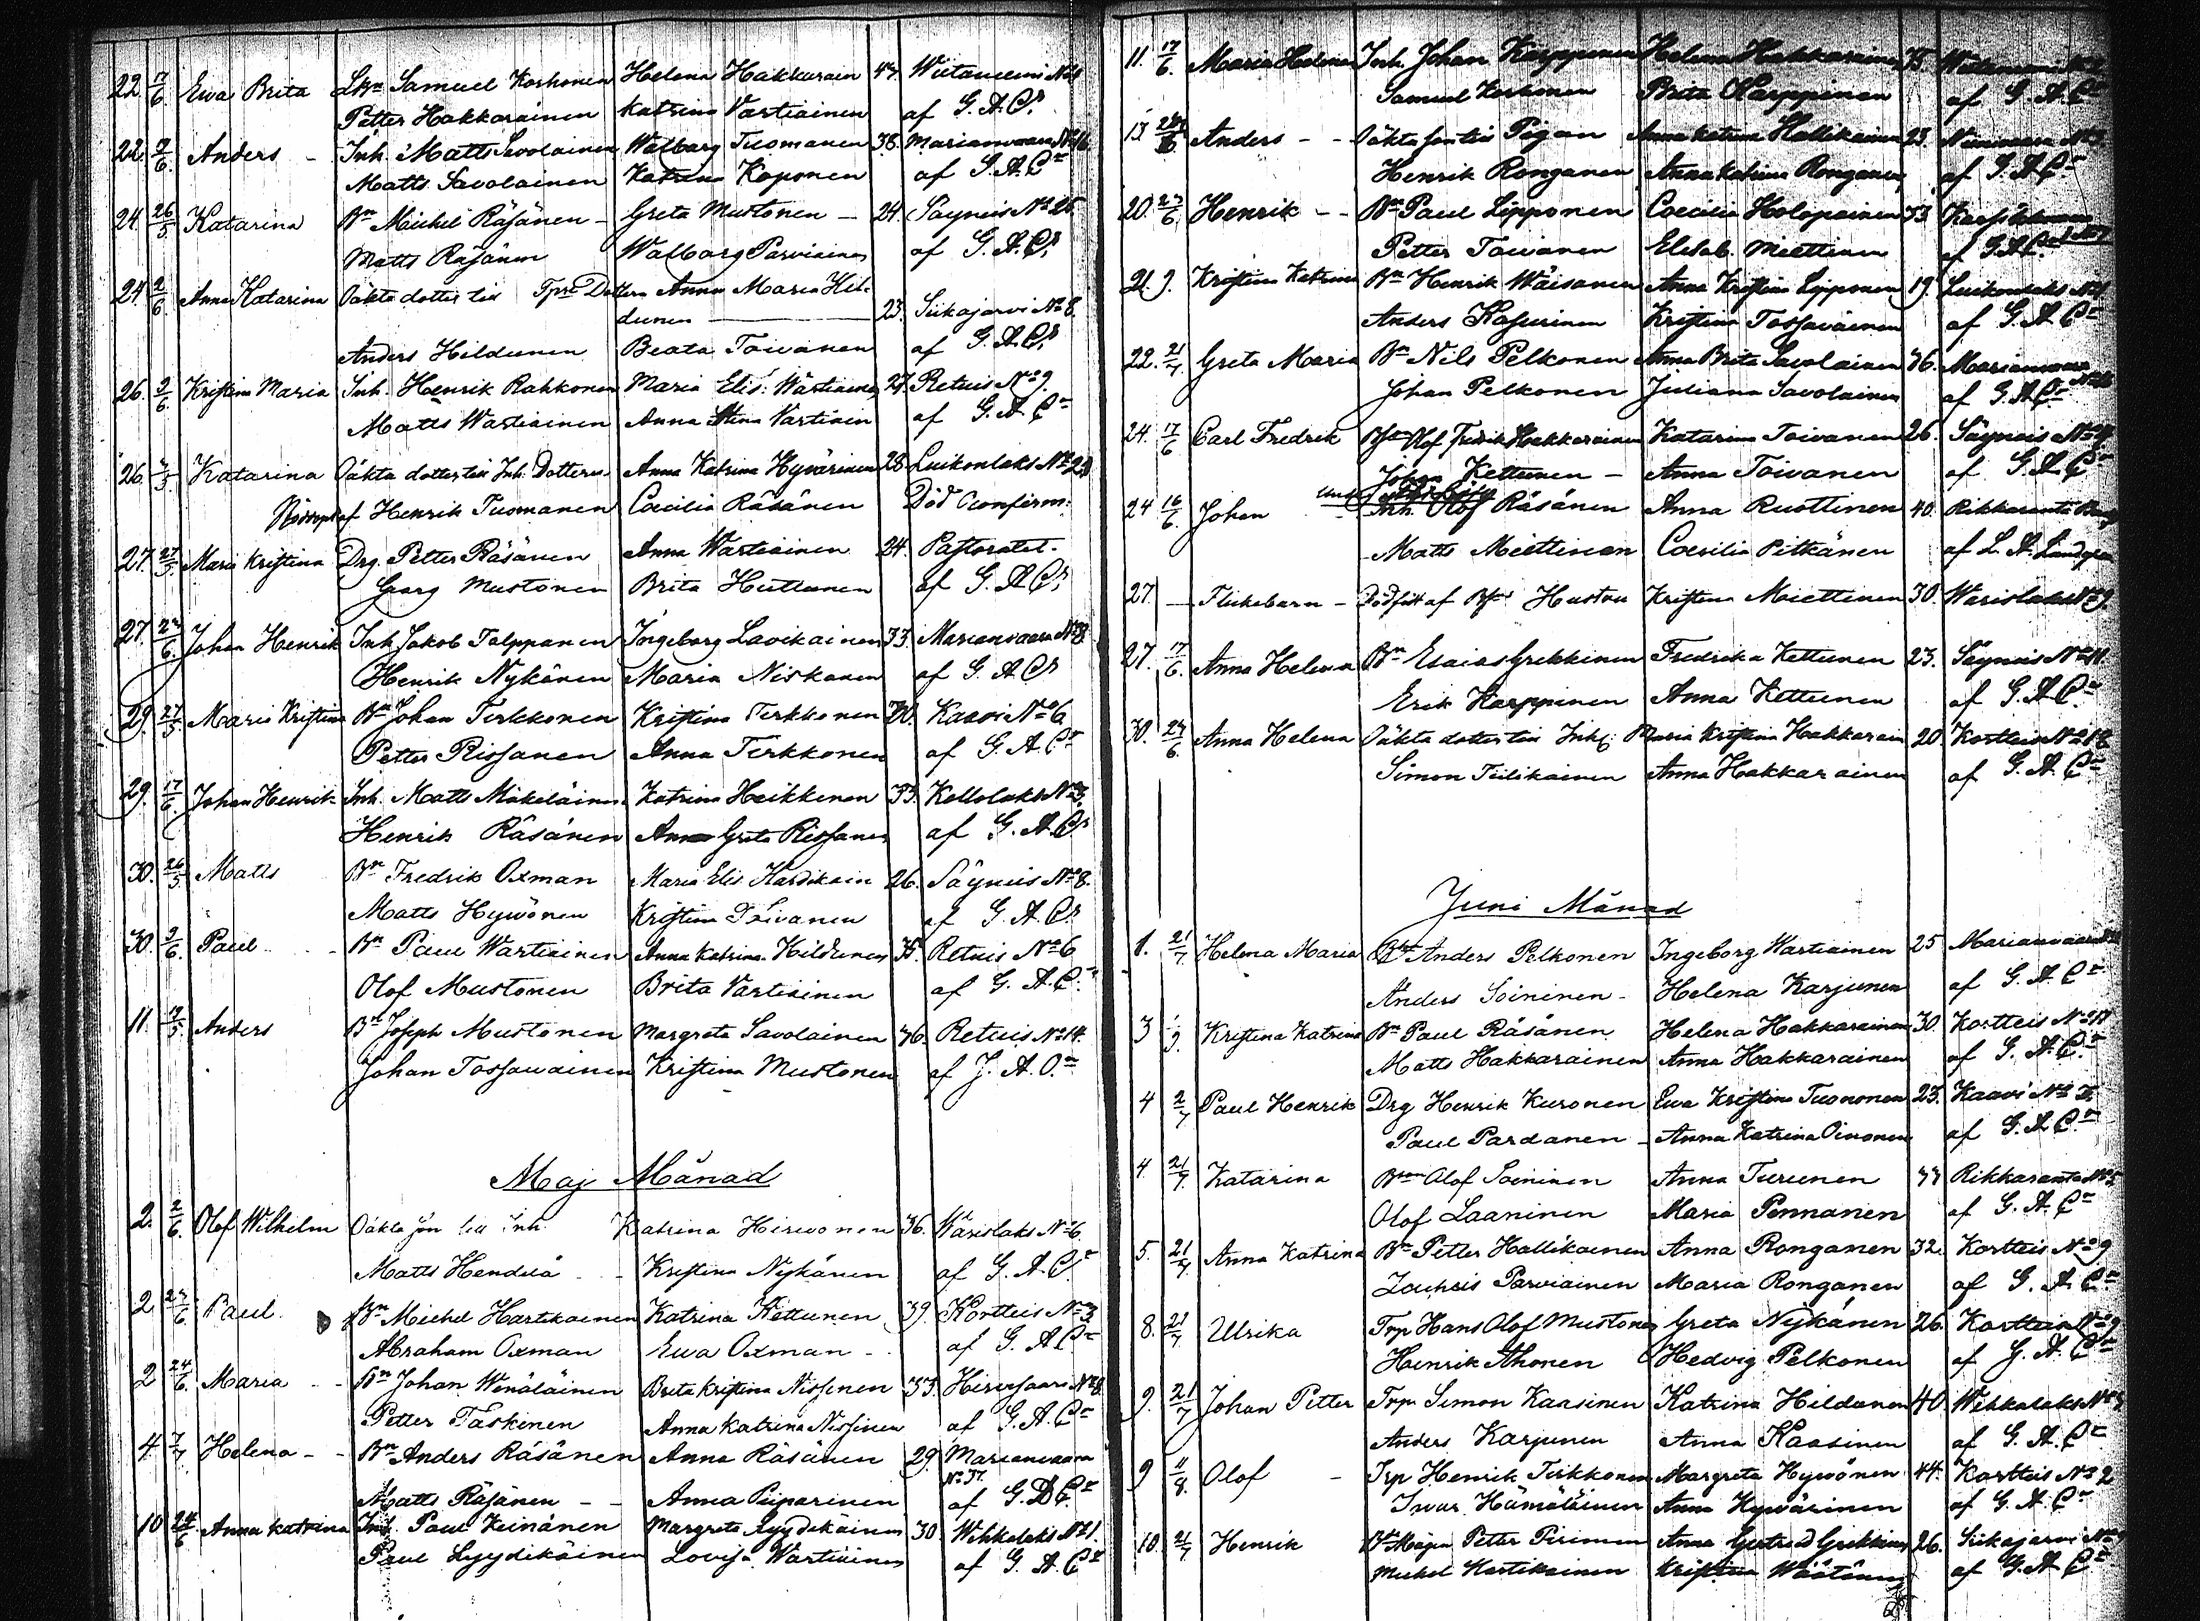 22. 17/6. Ewa Brita Lbn Samuel Korhonen Helena Hakkarain 47. Wiitaniemi No
Petter Hakkarainen Katrina Vartiainen af G. A. Cr
22. 2/6. Anders - Inh. Matts Savolainen Walborg Tuomanen 38. Marianvaara No 16
Matts Savolainen Katrina Koponen af G. A. Cn
24. 26/5 Katarina Bn Michel Räsänen - Greta Mustonen - 24. Säyneis No 26
Matts Räsänen Walborg Parviainen af G. A. Cr
24. 2/6. Anna Katarina Oäkta dotter till Tpre Dottern Anna Maria Hil-
dunen 23. Siikajärvi No 8.
Anders Hildunen Beata Toivanen af G. A. Cr
26. 2/6. Kristina Maria Inh. Henrik Rahkonen Maria Elis: Wartiainen 27. Retuis No 9.
Matts Wartiainen Anna Stina Vartiain af G. A. Cn
26. Katarina Oäkta dotter till Inh. Dottern Anna Katrina Hyvärinen 28. Luikonlaks No 23
Nöddöpt af Henrik Tuomanen Cecilia Räsänen Död Confirm:
27. 27/5. Maria Kristina Drg. Petter Räsänen Anna Wartiainen 24. Pastoratet.
Georg Mustonen Brita Huttunen af G. A. Cr
27. 27/6 Johan Henrik Inh. Jakob Talppanen Ingeborg Lavikainen 33. Marianvaara No 8.
Henrik Nykänen Maria Niskanen af G. A. Cr
29. 27/5 Maria Kristina Bn Johan Terkkonen Kristina Terkkonen 30. Kaavi No 6
Petter Rissanen Anna Terkkonen af G. A. Cn
29. 17/6. Johan Henrik Inh. Matts Mäkeläinen Katrina Heikkenen 33. Kollolaks No 3.
Henrik Räsänen Anna Greta Rissanen af G. A. Cr
30. 26/5 Matts Bn Fredrik Oxman Maria Elis Hardikain 26. Säyneis No 8.
Matts Hyvönen Kristina Toivanen af G. A. Cr
30. 2/6. Paul Bn Paul Wartiainen Anna Katrina Hildunen 35. Retuis No 6
Olof Mustonen Brita Vartiainen af G. A. Cn
11. Anders Bn Joseph Mustonen Margreta Savolainen 36. Retuis No 14.
Johan Tossavainen Kristina Mustonen af J. A. O.n
Maj Månad
2. 2/6. Olof Wilhelm Oäkta son till Inh. Katrina Hirvonen 36. Wärislaks No 6
Matts Hendilä Kristina Nykänen af G. A. Cn
2 27/6 Paul Bn Michel Hartikainen Katrina Kettunen 39. Kortteis No 3
Abraham Oxman Ewa Oxman - af G. A. Cn
2 24/6. Maria Bn Johan Wenäläinen Brita Kristina Nissinen 33. Hirvisaari No 8
Petter Taskinen Anna Katrina Nissinen af G. A. Cn
4 7/7 Helena Bn Anders Räsänen Anna Räsänen 29. Marianvaara
Matts Räsänen Anna Piiparinen No 37. af G. A. Cn
10 24/6 Anna Katrina Inh. Paul Keinänen Margreta Lyydikäinen 30 Wihkalaks No 1.
Paul Lyydikäinen Lovisa Wartiainen af G. A. Cn
11. 17/6. Maria Helena Inh. Johan Karppinen Helena Hakkarainen 35.
Samuel Korhonen Brita Karppinen af G. A. Cn
13. Anders Oäkta son till Pigan Anna Katrina Hallikainen 23. Niinivaara No 3
Henrik Ronganen Anna Katrina Ronganen af G. A. Cn
20. 27/6. Henrik Bn Paul Lipponen Coecilia Holopainen 33.
Petter Toivanen Elisab. Miettinen af G. A. Cn
21. 9. Kristina Katrina Bn Henrik Wäisänen Anna Kristina Lipponen 19. Luikonlaks No
Anders Kasurinen Kristina Tossavainen af G. A. Cn
22. 21/7 Greta Maria Bn Nils Pelkonen Anna Brita Savolainen 36. Marianvaara
Johan Pelkonen Juliana Savolainen af G. A. Cn
24. 17/6 Carl Fredrik Olof Fredrik Hakkarainen Katarina Toivanen 26. Säyneis No
Johan Kettunen - Anna Toivanen af G. A. Cn
24 16/6. Johan Inh. Olof Räsänen Anna Ruottinen 40. Rikkaranta
Matts Miettinen Coecilia Pitkänen af L. A. Lindgren
27. - Flickebarn - Dödfödt af Hustru Kristina Miettinen 30. Warislaks No 9.
27. 17/6. Anna Helena Bn Esaias Grekkinen Fredrika Kettunen 23. Säyneis No 11.
Erik Karppinen Anna Kettunen af G. A. Cn
30. 27/6. Anna Helena Oäkta dotter till Inh: Maria Kristina Hakkarain 20 Kortteis No 18
Simon Tiilikainen Anna Hakkarainen af G. A. Cn
Juni Månad
1. 21/7. Helena Maria Bn Anders Pelkonen Ingeborg Wartiainen 25 Marianvaara
Anders Soininen - Helena Karjunen af G. A. Cn
3 9. Kristina Katrina Bn Paul Räsänen Helena Hakkarainen 30. Kortteis No 18
Matts Hakkarainen Anna Hakkarainen af G. A. Cn
4 2/7 Paul Henrik Drg Henrik Kuronen Ewa Kristina Tuononen 23. Kaavi No 5.
Paul Pardanen - Anna Katrina Oinonen af G. A. Cn
4 21/7. Katarina Bn Olof Soininen Anna Turunen 37 Rikkaranta No 5
Olof Laaninen Maria Pennanen af G. A. Cn
5. 21/7. Anna Katrina Bn Petter Hallikainen Anna Ronganen 32. Kortteis No 9
Zachris Parviainen Maria Ronganen af G. A. Cn
8. 21/7. Ulrika Trp Hans Olof Mustonen Greta Nykänen 26. Kortteis No 9
Henrik Ahonen Hedvig Pelkonen af G. A. Cn
9. 21/7 Johan Petter Trp Simon Kaasinen Katrina Hildunen 40 Wihkalaks No
Anders Karjunen Anna Kaasinen af G. A. Cn
9 11/8. Olof - Trp Henrik Tirkkonen Margreta Hyvönen 44. Kortteis No 2
Ivar Hämäläinen Anna Hyvärinen af G. A. Cn
10. 21/7 Henrik Petter Piirinen Anna Gertrud Grekkinen 26. Siikajärvi No
Michel Hartikainen Kristina Wäätäinen af G. A. Cn